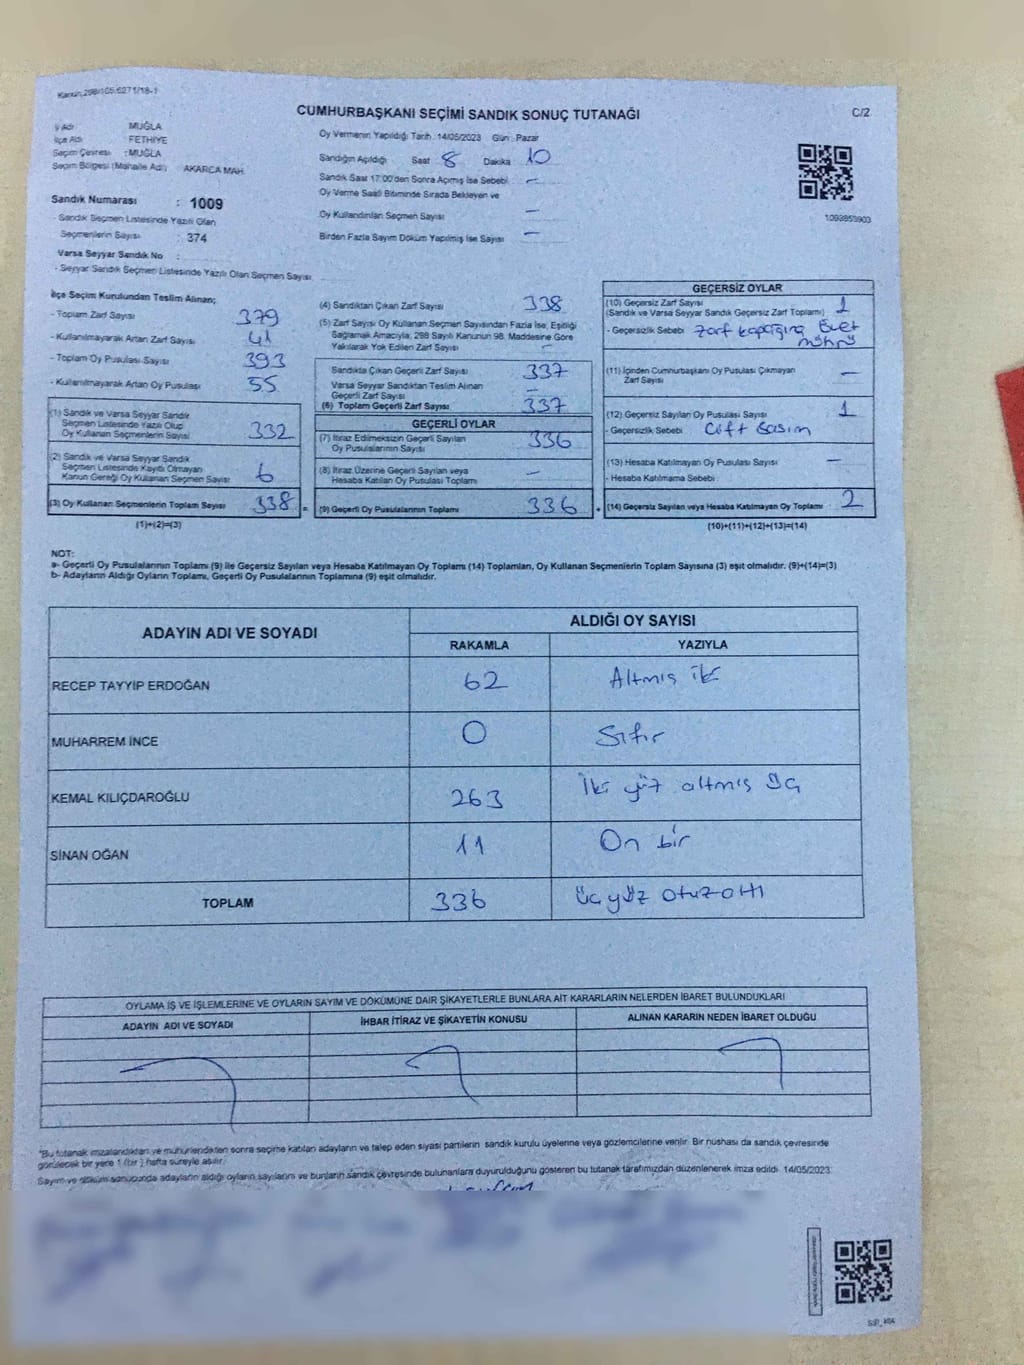 Kanun:298/105;6271/18-1
CUMHURBAŞKANI SEÇİMİ SANDIK SONUÇ TUTANAĞI
C/2
İl Adı : MUĞLA
İlçe Adı : FETHİYE
Seçim Çevresi : MUĞLA
Seçim Bölgesi (Mahalle Adı) : AKARCA MAH.
Oy Vermenin Yapıldığı Tarih :14/05/2023 Gün : Pazar
Sandığın Açıldığı Saat 8 Dakika 10
Sandık Saat 17:00'den Sonra Açımış İse Sebebi : –
Oy Verme Saati Bitiminde Sırada Bekleyen ve
Oy Kullandırılan Seçmen Sayısı –
Birden Fazla Sayım Döküm Yapılmış İse Sayısı –
1093953903
Sandık Numarası : 1009
- Sandık Seçmen Listesinde Yazılı Olan
Seçmenlerin Sayısı : 374
Varsa Seyyar Sandık No :
- Seyyar Sandık Seçmen Listesinde Yazılı Olan Seçmen Sayısı:
İlçe Seçim Kurulundan Teslim Alınan;
- Toplam Zarf Sayısı 379
- Kullanılmayarak Artan Zarf Sayısı 41
- Toplam Oy Pusulası Sayısı 393
- Kullanılmayarak Artan Oy Pusulası 55
(1) Sandık ve Varsa Seyyar Sandık
Seçmen Listesinde Yazılı Olup
Oy Kullanan Seçmenlerin Sayısı 332
(2) Sandık ve Varsa Seyyar Sandık
Seçmen Listesinde Kayıtlı Olmayan
Kanun Gereği Oy Kullanan Seçmen Sayısı 6
(3) Oy Kullanan Seçmenlerin Toplam Sayısı 338 =
(1)+(2)=(3)
(4) Sandıktan Çıkan Zarf Sayısı 338
(5) Zarf Sayısı Oy Kullanan Seçmen Sayısından Fazla İse, Eşitliği
Sağlamak Amacıyla, 298 Sayılı Kanunun 98. Maddesine Göre
Yakılarak Yok Edilen Zarf Sayısı –
Sandıkta Çıkan Geçerli Zarf Sayısı 337
Varsa Seyyar Sandıktan Teslim Alınan
Geçerli Zarf Sayısı –
(6) Toplam Geçerli Zarf Sayısı 337
GEÇERLİ OYLAR
(7) İtiraz Edilmeksizin Geçerli Sayılan
Oy Pusulalarının Sayısı 336
(8) İtiraz Üzerine Geçerli Sayılan veya
Hesaba Katılan Oy Pusulası Toplamı –
(9) Geçerli Oy Pusulalarının Toplamı 336 +
GEÇERSİZ OYLAR
(10) Geçersiz Zarf Sayısı 1
(Sandık ve Varsa Seyyar Sandık Geçersiz Zarf Toplamı)
- Geçersizlik Sebebi zarf kapağına Evet
mührü
(11) İçinden Cumhurbaşkanı Oy Pusulası Çıkmayan
Zarf Sayısı –
(12) Geçersiz Sayılan Oy Pusulası Sayısı 1
- Geçersizlik Sebebi Çift Basım
(13) Hesaba Katılmayan Oy Pusulası Sayısı –
- Hesaba Katılmama Sebebi
(14) Geçersiz Sayılan veya Hesaba Katılmayan Oy Toplamı 2
(10)+(11)+(12)+(13)=(14)
NOT:
a- Geçerli Oy Pusulalarının Toplamı (9) ile Geçersiz Sayılan veya Hesaba Katılmayan Oy Toplamı (14) Toplamları, Oy Kullanan Seçmenlerin Toplam Sayısına (3) eşit olmalıdır. (9)+(14)=(3)
b- Adayların Aldığı Oyların Toplamı, Geçerli Oy Pusulalarının Toplamına (9) eşit olmalıdır.
ADAYIN ADI VE SOYADI
ALDIĞI OY SAYISI
RAKAMLA YAZIYLA
RECEP TAYYİP ERDOĞAN 62 Altmış iki
MUHARREM İNCE 0 Sıfır
KEMAL KILIÇDAROĞLU 263 İki yüz altmış üç
SİNAN OĞAN 11 On bir
TOPLAM 336 üç yüz otuz altı
OYLAMA İŞ VE İŞLEMLERİNE VE OYLARIN SAYIM VE DÖKÜMÜNE DAİR ŞİKAYETLERLE BUNLARA AİT KARARLARIN NELERDEN İBARET BULUNDUKLARI
ADAYIN ADI VE SOYADI İHBAR İTİRAZ VE ŞİKAYETİN KONUSU ALINAN KARARIN NEDEN İBARET OLDUĞU
"Bu tutanak imzalandıktan ve mühürlendikten sonra seçime katılan adayların ve talep eden siyasi partilerin sandık kurulu üyelerine veya gözlemcilerine verilir. Bir nüshası da sandık çevresinde
görülecek bir yere 1 (bir ) hafta süreyle asılır.
Sayım ve döküm sonucunda adayların aldığı oyların sayılarını ve bunların sandık çevresinde bulunanlara duyurulduğunu gösteren bu tutanak tarafımızdan düzenlenerek imza edildi. 14/05/2023